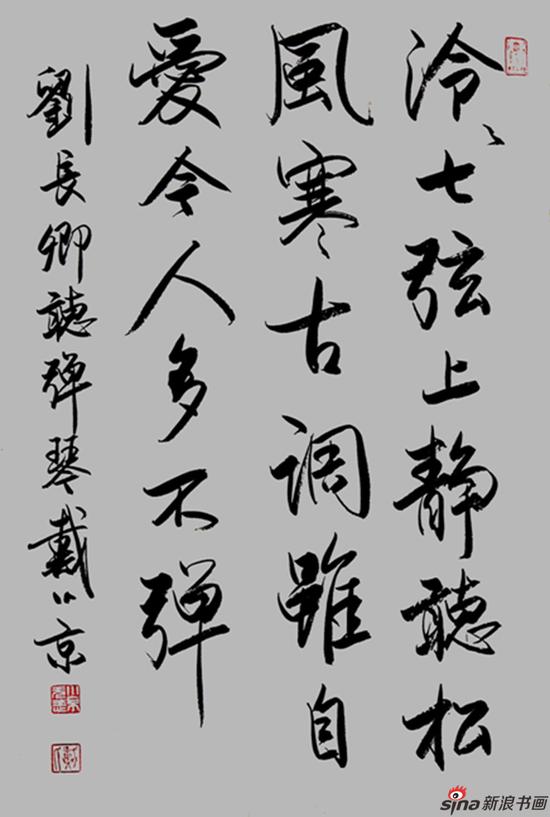 泠々七弦上静聽松
風寒古调雖自
愛令人多不弹
劉長卿聽弹琴戴小京
sina 新浪书画